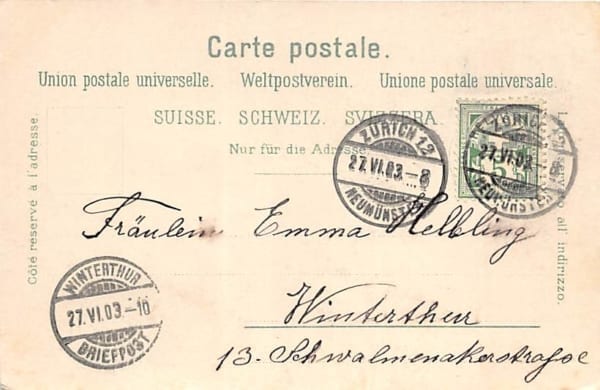 Carte postale.
Union postale universelle. Weltpostverein. Unione postale universale.
SUISSE. SCHWEIZ. SVIZZERA.
Nur für die Adresse
Côté réservé à l'adresse.
ZÜRICH 12
27.VI.03.–8
NEUMÜNSTER
ZÜRICH 12
27.VI.03.–8
NEUMÜNSTER
5
Fräulein Emma Helbling
Winterthur
13. Schwalmenakerstrasse
WINTERTHUR
27.VI.03.–10
BRIEFPOST
all' indirizzo.